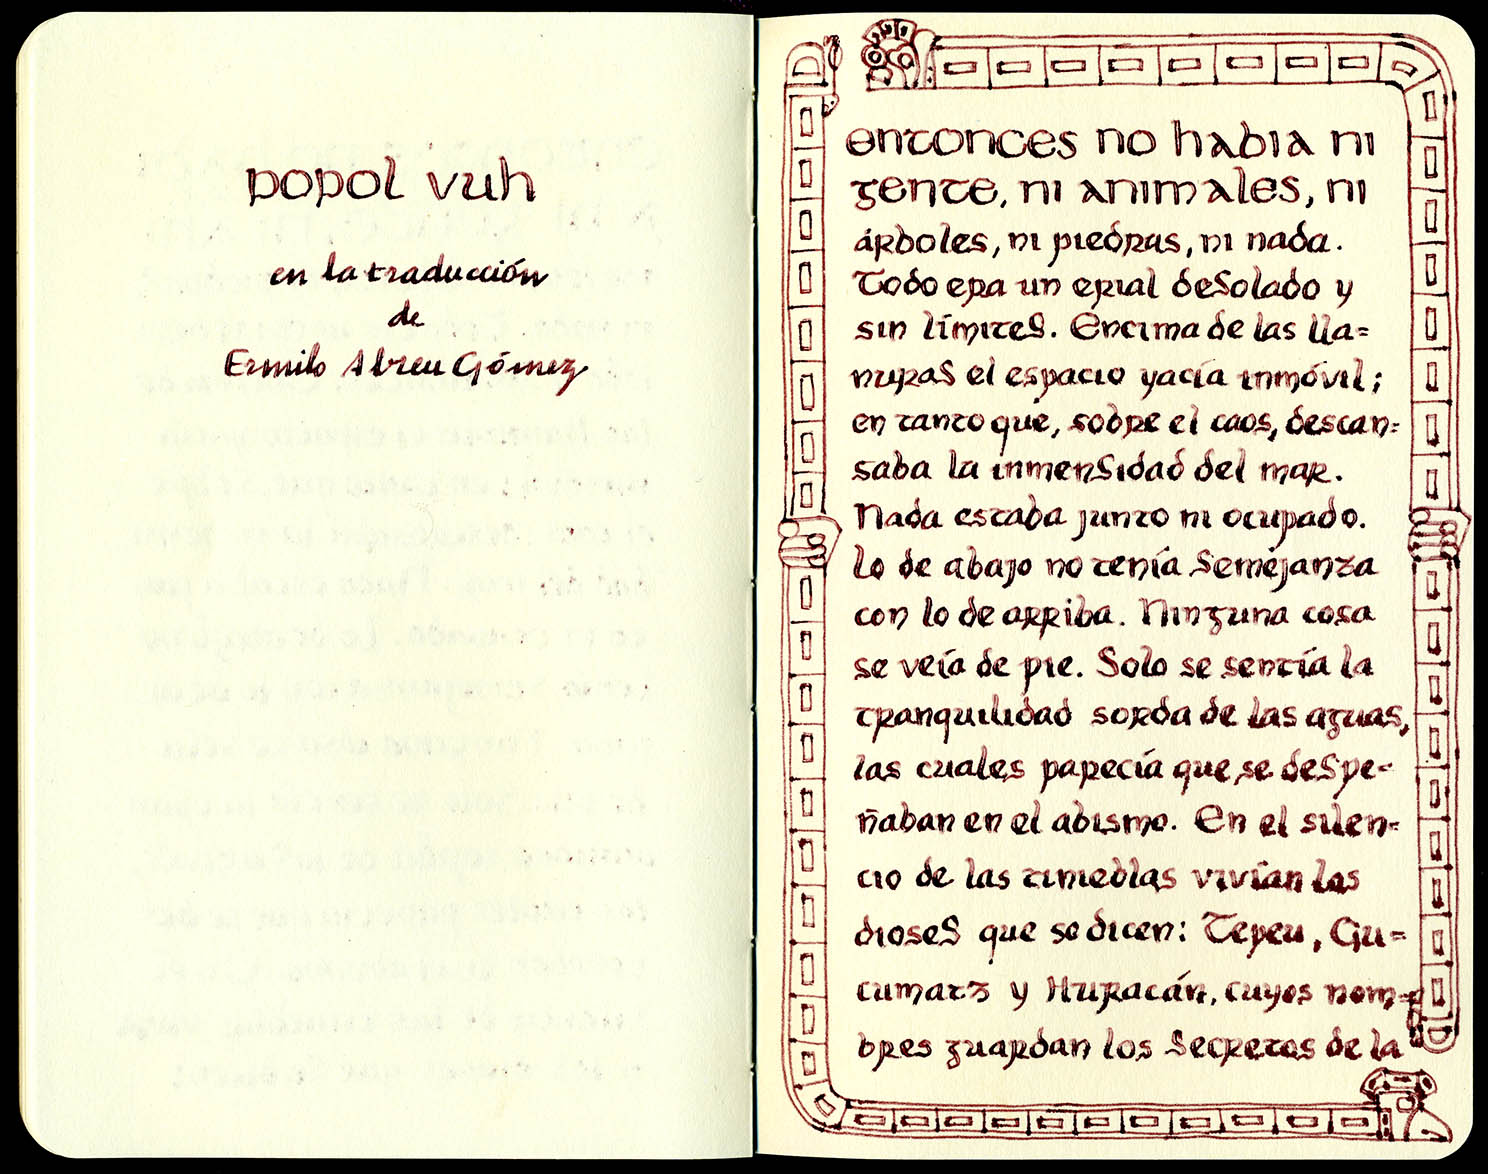 popol vuh
en la traducción
de
Ermilo Abreu Gómez
entonces no habia ni
gente, ni animales, ni
árboles, ni piedras, ni nada.
Todo era un erial desolado y
sin límites. Encima de las lla=
nuras el espacio yacía inmóvil;
en tanto que, sobre el caos, descan=
saba la inmensidad del mar.
Nada estaba junto ni ocupado.
lo de abajo no tenía semejanza
con lo de arriba. Ninguna cosa
se veía de pie. Solo se sentía la
tranquilidad sorda de las aguas,
las cuales parecía que se despe=
ñaban en el abismo. En el silen=
cio de las timeblas vivían los
dioses que se dicen: Tepeu, Gu=
cumatz y Huracán, cuyos nom=
bres guardan los secretos de la